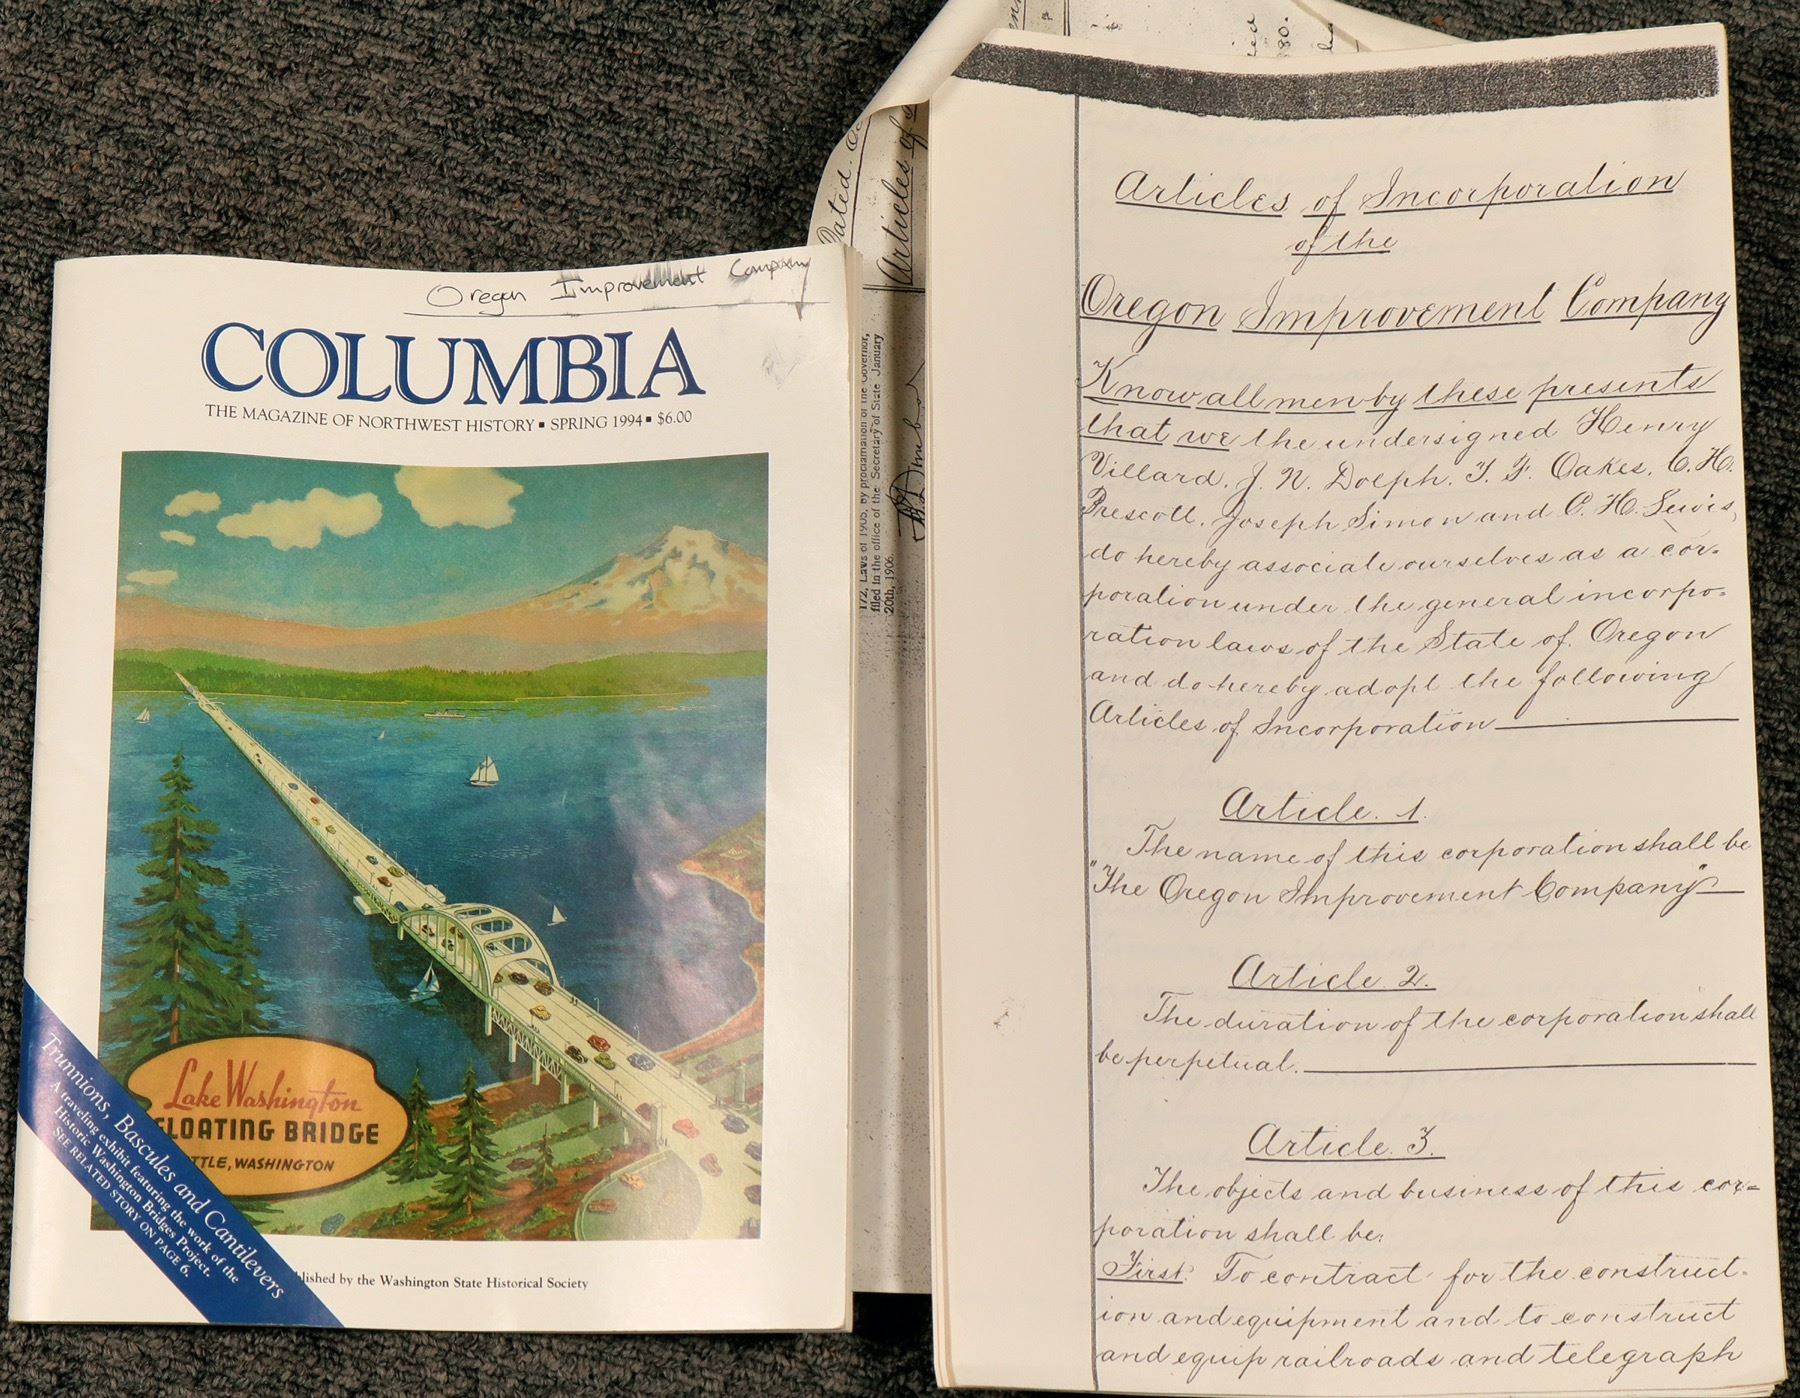 Oregon Improvement Company
COLUMBIA
THE MAGAZINE OF NORTHWEST HISTORY ▪ SPRING 1994 ▪ $6.00
Lake Washington
FLOATING BRIDGE
TTLE, WASHINGTON
Trunnions, Bascules and Cantilevers
A traveling exhibit featuring the work of the
Historic Washington Bridges Project.
SEE RELATED STORY ON PAGE 6.
lished by the Washington State Historical Society
Dated.
Articles of
172, Laws of 1905, by proclamation of the Governor,
filed in the office of the Secretary of State January
20th, 1906.
80.
Articles of Incorporation
of the
Oregon Improvement Company
Know all men by these presents
that we the undersigned Henry
Villard, J. N. Dolph, T. F. Oakes, C. H.
Prescott, Joseph Simon and C. H. Lewis,
do hereby associate ourselves as a cor-
poration under the general incorpo-
ration laws of the State of Oregon
and do hereby adopt the following
Articles of Incorporation
Article 1.
The name of this corporation shall be
"The Oregon Improvement Company"
Article 2.
The duration of the corporation shall
be perpetual.
Article 3.
The objects and business of this cor-
poration shall be:
First: To contract for the construct-
ion and equipment and to construct
and equip railroads and telegraph